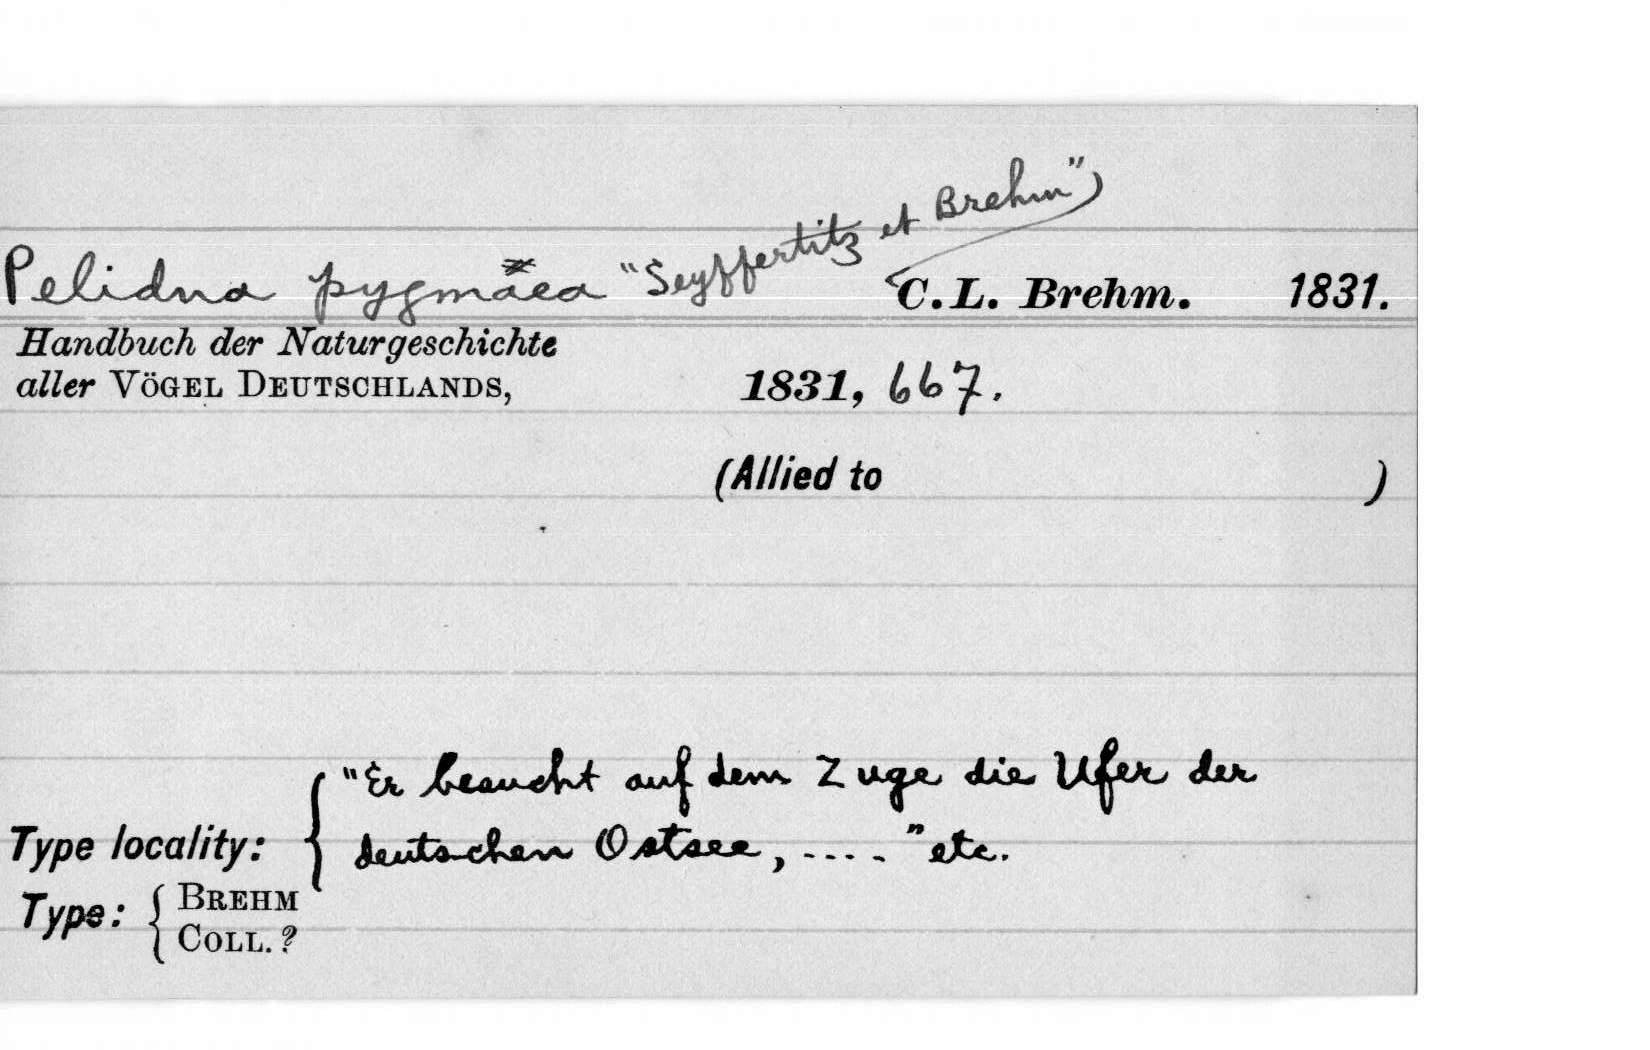 Pelidna pygmaea "Seyffertitz et Brehm") C. L. Brehm. 1831.
Handbuch der Naturgeschichte
aller VÖGEL DEUTSCHLANDS, 1831, 667.
(Allied to )
"Er besucht auf dem Zuge die Ufer der
Type locality: deutschen Ostsee, ...." etc.
Type: BREHM
COLL. ?